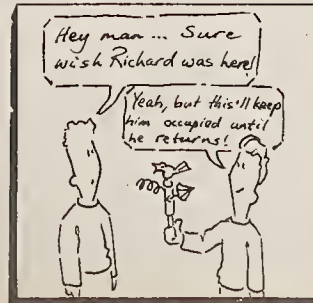 Hey man ... Sure
wish Richard was here!
Yeah, but this'll keep
him occupied until
he returns!